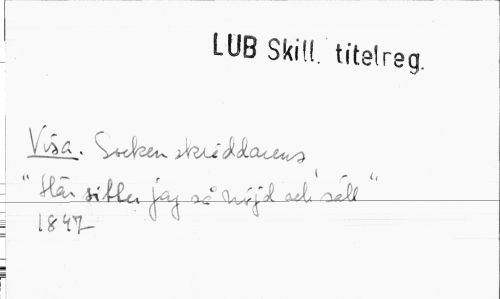 LUB Skill. titelreg.
Visa. Sockenskräddarens
"Här sitter jag så nöjd och säll"
1847